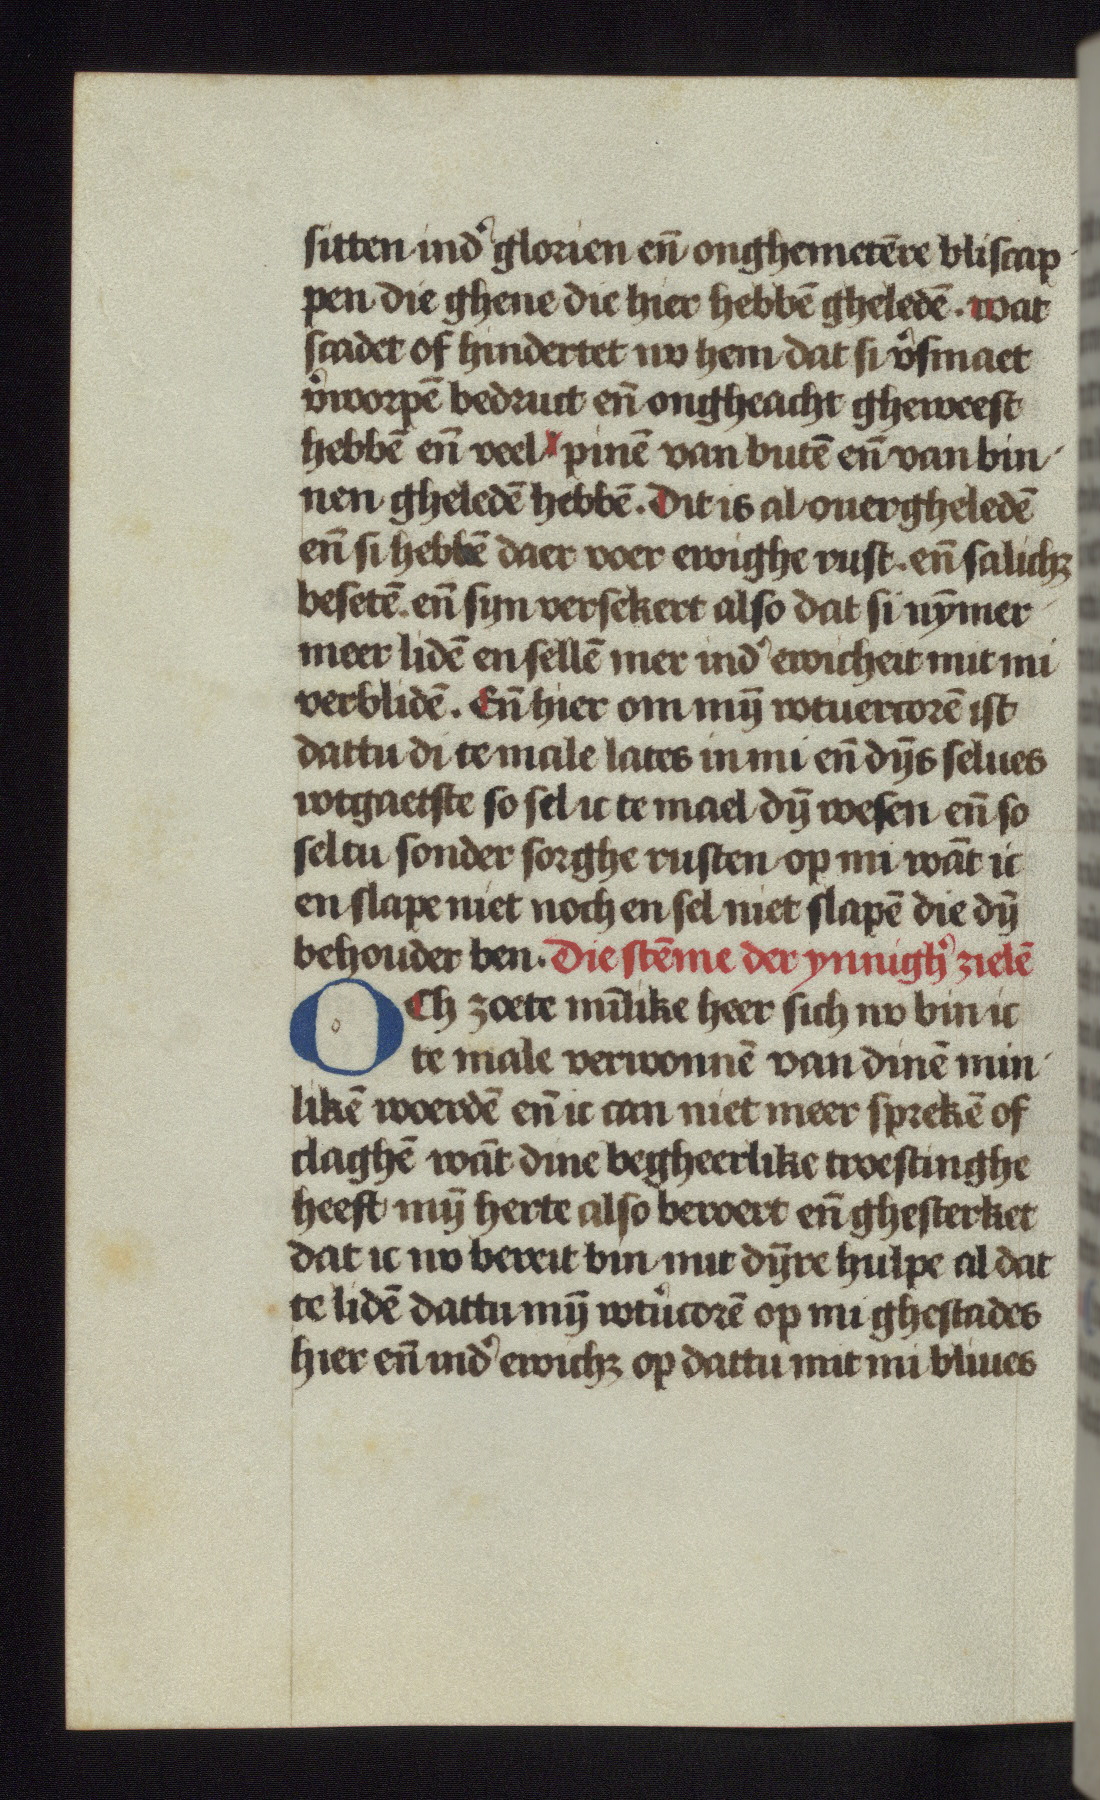 sitten indʾ glorien en̄ onghemetēre bliscap
pen die ghene die hier hebbē gheledē. wat
scadet of hindertet nv hem dat si vʾsmaet
vʾworpē bedruct en̄ ongheacht gheweest
hebbē en̄ veel pinē van butē en̄ van bin
nen gheledē hebbē. Dit is al ouergheledē
en̄ si hebbē daer voer ewighe rust. en̄ salichꝫ
besetē. en̄ sijn versekert also dat si nȳmer
meer lidē en sellē mer indʾ ewicheit mit mi
verblidē. En̄ hier om mȳ wtuercorē ist
dattu di te male lates in mi en̄ dȳs selues
wtgaetste so sel ic te mael dȳ wesen en̄ so
seltu sonder sorghe rusten op mi wāt ic
en slape niet noch en sel niet slapē die dȳ
behouder ben. Die stēme der ynnighʾ zielē
OCh zoete mīlike heer sich nv bin ic
te male verwonnē van dinē min
likē woerdē en̄ ic can niet meer sprekē of
claghē wāt dine begheerlike troestinghe
heeft mȳ herte also beroert en̄ ghesterket
dat ic nv bereit bin mit dȳre hulpe al dat
te lidē dattu mȳ wtuʾcorē op mi ghestades
hier en̄ indʾ ewichꝫ op dattu mit mi bliues